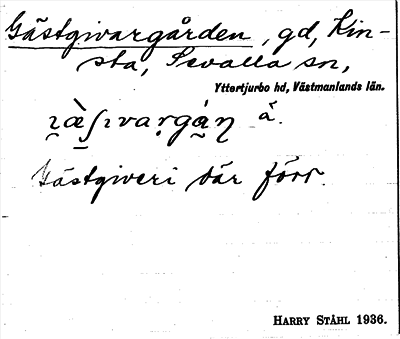 Gästgivargården, gd, Kin-
sta, Sevalla sn,
Yttertjurbo hd, Västmanlands län.
å.
Gästgiveri där förr.
HARRY STÅHL 1936.